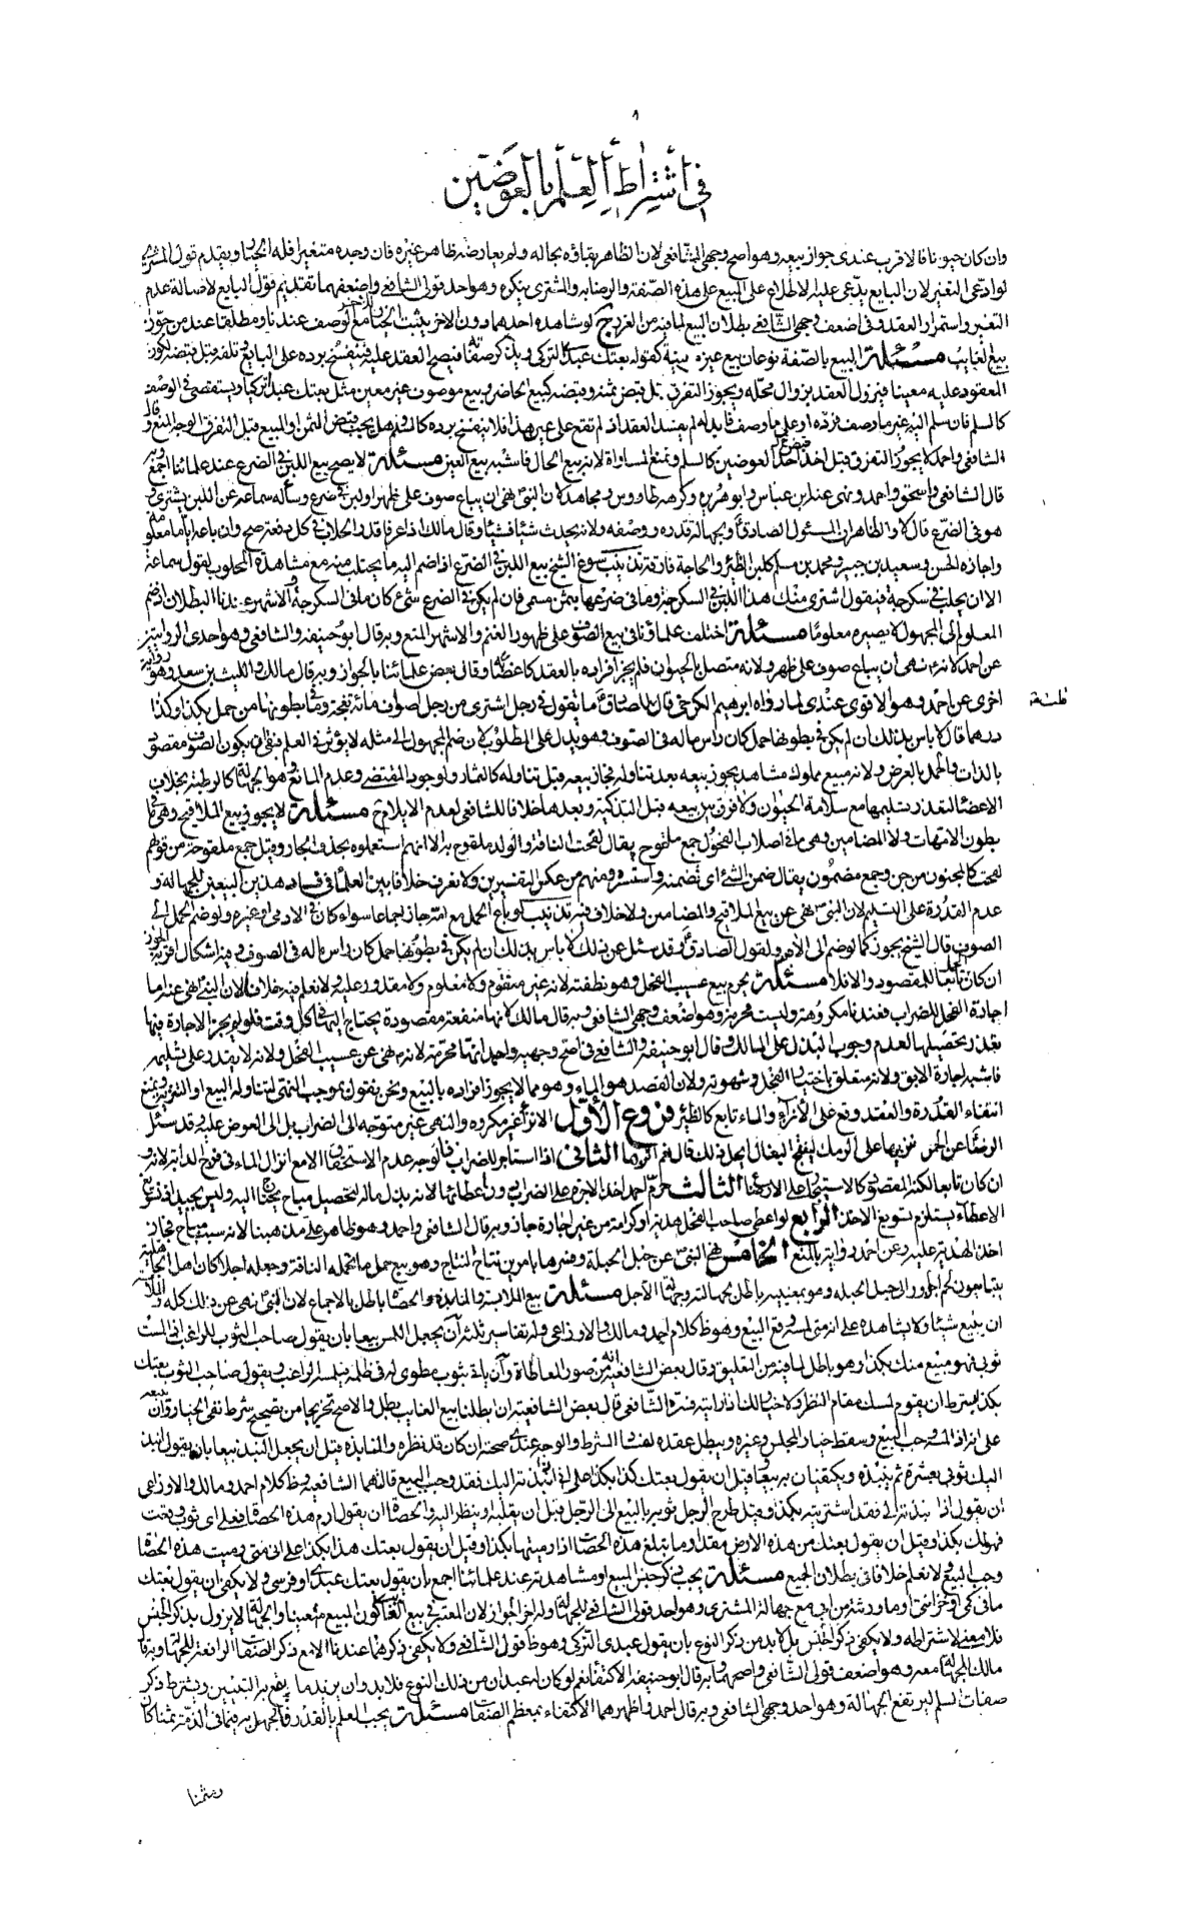 ٨
في اشتراط العلم بالعوضين
وان كان حيوانا فالاقرب عندى جواز بيعه وهو اصح وجهى الشافعى لان الظاهر بقاؤه بحاله ولم يعارضه ظاهر غيره فان وجده متغيرا فله الخيار ويقدم قول المشترى
لو ادعى التغير لان البايع يدعى عليه الاطلاع على المبيع على هذه الصفة والرضا به والمشترى ينكره وهو احد قولى الشافعى واضعفهما تقديم قول البايع لاصالة عدم
التغير واستمرار العقد وفى اضعف وجهى الشافعى بطلان البيع لما فيه من الغرر لو شاهد احدهما دون الاخر يثبت الخيار مع الوصف عندنا ومطلقا عند من جوز
بيع الغايب مسئلة البيع بالصفة نوعان بيع عين معينة كقوله بعتك عبدى التركى ويذكر صفاته فيصح العقد عليه فينفسخ برده على البايع وتلفه قبل قبضه لكون
المعقود عليه معينا فيزول العقد بزوال محله ويجوز التفرق قبل قبض ثمنه وقبضه كبيع الحاضر وبيع موصوف غير معين مثل بعتك عبدا تركيا ويستقصى فى الوصف
كالسلم فان سلم اليه غير ما وصف فرده او على ما وصف فابدله لم يفسد العقد اذ لم يقع على عين هذا فلا ينفسخ برده كالسلم وهل يجب قبض الثمن او المبيع قبل التفرق الوجه المنع وقال
الشافعى واحمد لا يجوز التفرق قبل قبض احد العوضين كالسلم ونمنع المساواة لانه بيع الحال فاشبه بيع العين مسئلة لا يصح بيع اللبن فى الضرع عند علمائنا اجمع وبه
قال الشافعى واسحق واحمد ونهى عنه ابن عباس وابو هريرة وكرهه طاووس ومجاهد لان النبى نهى ان يباع صوف على ظهر او لبن فى ضرع وسأله سماعة عن اللبن يشترى و
هو فى الضرع قال لا والظاهر ان المسئول الصادق ولجهالة قدره ووصفه ولانه يحدث شيئا فشيئا وقال مالك اذا عرفا قدر الحلاب فى كل دفعة صح وان باعه اياما معلومة
واجازه الحسن وسعيد بن جبير ومحمد بن مسلم كلبن الظئر والحاجة فارقة تذنيب سوغ الشيخ بيع اللبن فى الضرع اذا ضم اليه ما يحتلب منه مع مشاهدة المحلوب لقول سماعة
الا ان يحلب فى سكرجة فيقول اشترى منك هذا اللبن فى السكرجة وما فى ضرعها بثمن مسمى فان لم يكن فى الضرع شئ كان ما فى السكرجة والاشهر عندنا البطلان اذ ضم
المعلوم الى المجهول لا يصيره معلوما مسئلة اختلف علماؤنا فى بيع الصوف على ظهور الغنم والاشهر المنع وبه قال ابو حنيفة والشافعى وهو احدى الروايتين
عن احمد لانه نهى ان يباع صوف على ظهر ولانه متصل بالحيوان فلم يجز افراده بالعقد كاعضائه وقال بعض علمائنا بالجواز وبه قال مالك والليث بن سعد وهو رواية
اخرى عن احمد وهو الاقوى عندى لما رواه ابرهيم الكرخى قال للصادق ما تقول فى رجل اشترى من رجل اصواف مائة نعجة وما فى بطونها من حمل بكذا وكذا
درهما قال لا باس بذلك ان لم يكن فى بطونها حمل كان راس ماله فى الصوف وهو يدل على المطلوب لان ضم المجهول الى مثله لا يؤثر فى العلم فبقى ان يكون الصوف مقصودا
بالذات والحمل بالعرض ولانه مبيع مملوك مشاهد يجوز بيعه بعد تناوله فجاز بيعه قبل تناوله كالثمار ولوجود المقتضى وعدم المانع وهو الجهالة كالرطبة بخلاف
الاعضاء لتعذر تسليمها مع سلامة الحيوان ولا فرق بين بيعه قبل التذكية وبعدها خلافا للشافعى لعدم الايلام ح مسئلة لا يجوز بيع الملاقيح وهى ما فى
بطون الامهات ولا المضامين وهى ما فى اصلاب الفحول جمع ملقوح يقال لقحت الناقة والولد ملقوح به الا انهم استعملوه بحذف الجار وقيل جمع ملقوحة من قولهم
لقحت كالمجنون من جن وجمع مضمون يقال ضمن الشئ اى تضمنه واستسره ومنهم من عكس التفسيرين ولا نعرف خلافا بين العلماء فى فساد هذين البيعين للجهالة و
عدم القدرة على التسليم لان النبى نهى عن بيع الملاقيح والمضامين ولا خلاف فيه تذنيب لو باع الحمل مع امه جاز اجماعا سواء كان فى الادمى او غيره ولو ضم الحمل الى
الصوف قال الشيخ يجوز كما لو ضم الى الام ولقول الصادق وقد سئل عن ذلك لا باس بذلك ان لم يكن فى بطونها حمل كان راس ماله فى الصوف وفيه اشكال اقربه الجواز
ان كان الحمل تابعا للمقصود والا فلا مسئلة يحرم بيع عسيب الفحل وهو نطفته لانه غير متقوم ولا معلوم ولا مقدور عليه ولا نعلم فيه خلافا لان النبى نهى عنه اما
اجارة الفحل للضراب فعندنا مكروهة وليست محرمة وهو اضعف وجهى الشافعى وبه قال مالك لانها منفعة مقصودة يحتاج اليها فى كل وقت فلو لم يجز الاجارة فيها
تعذر تحصيلها لعدم وجوب البذل على المالك وقال ابو حنيفة والشافعى فى اصح وجهيه واحمد انها محرمة لانه نهى عن عسيب الفحل ولانه لا يقدر على تسليمه
فاشبه اجارة الابق ولانه متعلق باختيار الفحل وشهوته ولان القصد هو الماء وهو مما لا يجوز افراده بالبيع ونحن نقول بموجب النهى لتناوله البيع او التنزيه ونمنع
انتفاء القدرة والعقد وقع على الانزاء والماء تابع كالظئر فروع الاول الانزاء غير مكروه والنهى غير متوجه الى الضراب بل الى العوض عليه وقد سئل
الرضا عن الحمر تنزيها على الرمك لتنتج البغال ايحل ذلك قال نعم انزها الثانى اذا استاجر للضراب فالوجه عدم الاستحقاق الا مع انزال الماء فى فرج الدابة لانه و
ان كان تابعا لكنه المقصود كالاستيجار على الارضاع الثالث حرم احمد اخذ الاجرة على الضراب دون اعطائها لانه بذل ماله لتحصيل مباح يحتاج اليه وليس بجيد اذ تسويغ
الاعطاء يستلزم تسويغ الاخذ الرابع لو اعطى صاحب الفحل هدية او كرامة من غير اجارة جاز وبه قال الشافعى واحمد وهو ظاهر على مذهبنا لانه سبب مباح فجاز
اخذ الهدية عليه وعن احمد رواية بالمنع الخامس نهى النبى عن حبل الحبلة وفسر بامرين نتاج النتاج وهو بيع حمل ما تحمله الناقة وجعله اجلا كان اهل الجاهلية
يتبايعون لحم الجزور الى حبل الحبلة وهو بمعنييه باطل لجهالته وجهالة الاجل مسئلة بيع الملابسة والمنابذة والحصاة باطل بالاجماع لان النبى نهى عن ذلك كله والملامسة
ان يبيع شيئا ولا يشاهده على انه متى لمسه وقع البيع وهو ظ كلام احمد ومالك والاوزاعى وله تفاسير ثلثة ان يجعل اللمس بيعا بان يقول صاحب الثوب للراغب اذا لمست
ثوبى فهو مبيع منك بكذا وهو باطل لما فيه من التعليق وقال بعض الشافعية انه من صور المعاطاة وان ياتى بثوب مطوى او فى ظلمة فيلمسه الراغب ويقول صاحب الثوب بعتك
بكذا بشرط ان يقوم لمسك مقام النظر ولا خيار لك اذا رايته فسره الشافعى قال بعض الشافعية ان ابطلنا بيع الغايب بطل والا صح تخريجا من تصحيح شرط نفى الخيار وان يبيعه
على انه اذا لمسه وجب البيع وسقط خيار المجلس وغيره ويبطل عقده لفساد الشرط والوجه عندى صحته ان كان قد نظره والمنابذة قيل ان يجعل النبذ بيعا بان يقول انبذ
اليك ثوبى بعشرة ثم ينبذه ويكتفيان به بيعا وقيل ان يقول بعتك كذا بكذا على انى اذا نبذته اليك فقد وجب البيع قالهما الشافعية وظ كلام احمد ومالك والاوزاعى
ان يقول اذا نبذته الى فقد اشتريته بكذا وقيل طرح الرجل ثوبه بالبيع الى الرجل قبل ان يقلبه وينظر اليه والحصاة ان يقول ارم هذه الحصاة فعلى اى ثوب وقعت
فهو لك بكذا وقيل ان يقول بعتك من هذه الارض مقدار ما تبلغ هذه الحصاة اذا رميتها بكذا وقيل ان يقول بعتك هذا بكذا على انى متى رميت هذه الحصاة
وجب البيع ولا نعلم خلافا فى بطلان الجميع مسئلة يجب ذكر جنس المبيع او مشاهدته عند علمائنا اجمع بان يقول بعتك عبدى او فرسى ولا يكفى ان يقول بعتك
ما فى كمى او خزانتى او ما ورثته من ابى مع جهالة المشترى وهو احد قولى الشافعى للجهالة وله اخر الجواز لان المعتبر فى بيع الغائب كون المبيع متعينا والجهالة لا تزول بذكر الجنس
فلا معنى لاشتراطه ولا يكفى ذكر الجنس بل لا بد من ذكر النوع بان يقول عبدى التركى وهو ظ قول الشافعى ولا يكفى ذكرهما عندنا الا مع ذكر الصفات الرافعة للجهالة وبه قال
مالك للجهالة معه وهو اضعف قولى الشافعى واصحهما وبه قال ابو حنيفة الاكتفاء نعم لو كان له عبدان من ذلك النوع فلا بد وان يزيد ما يقع به التعيين ويشترط ذكر
صفات السلم ليرتفع الجهالة وهو احد وجهى الشافعى وبه قال احمد واظهرهما الاكتفاء بمعظم الصفات مسئلة يجب العلم بالقدر فالجهل به فيما فى الذمة ثمنا كان
ومثمنا